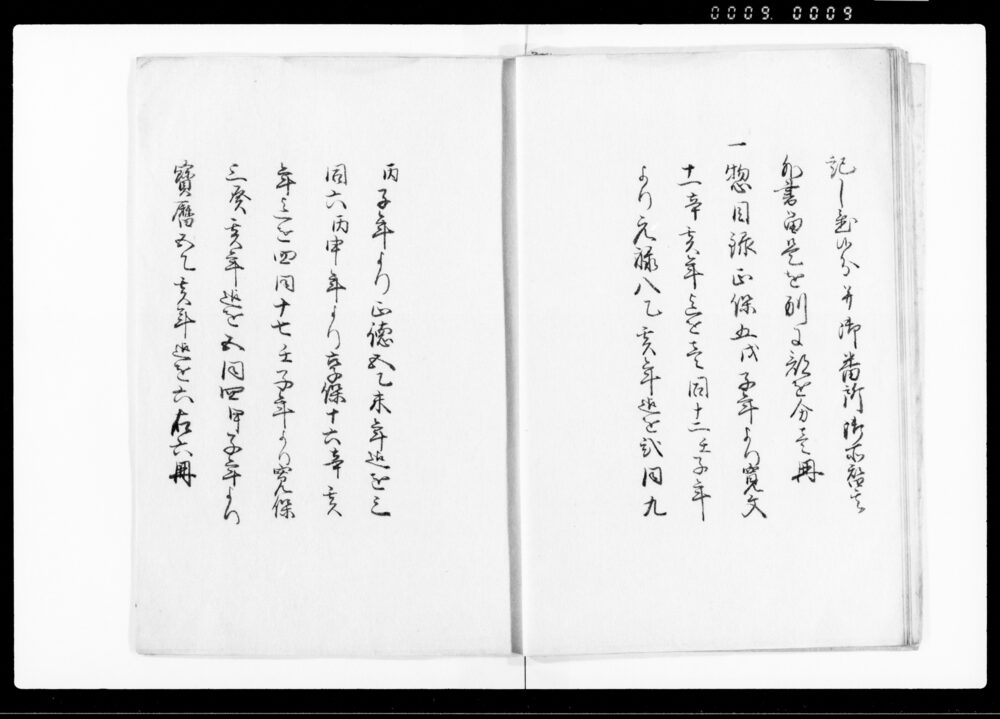 0009. 0009
記し置候分并御番所御
書留是を別ニ部を分壱冊
一惣目録正保五戊子年より寛文
十一辛亥年迄を壱同十二壬子年
より元禄八乙亥年迄を弐同九
丙子年より正徳五乙未年迄を三
同六丙申年より享保十六辛亥
年迄を四同十七壬子年より寛保
三癸亥年迄を五同四甲子年より
寶暦五乙亥年迄を六右六冊